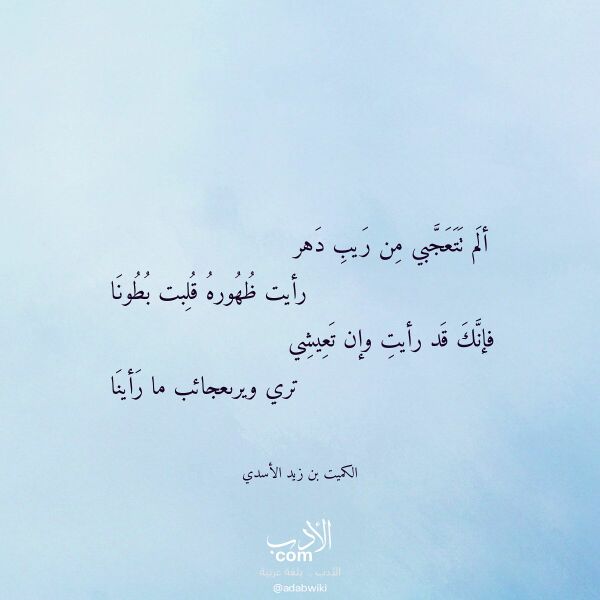 ألَم تَتَعَجَّبي مِن رَيبِ دَهر
رأيت ظُهُورهُ قُلِبت بُطُونَا
فإنَّكَ قَد رأيتِ وإن تَعِيشِي
تري ويرىعجائب ما رَأينَا
الكميت بن زيد الأسدي
الأدب
com
الأدب .. بلغة عربية
@adabwiki